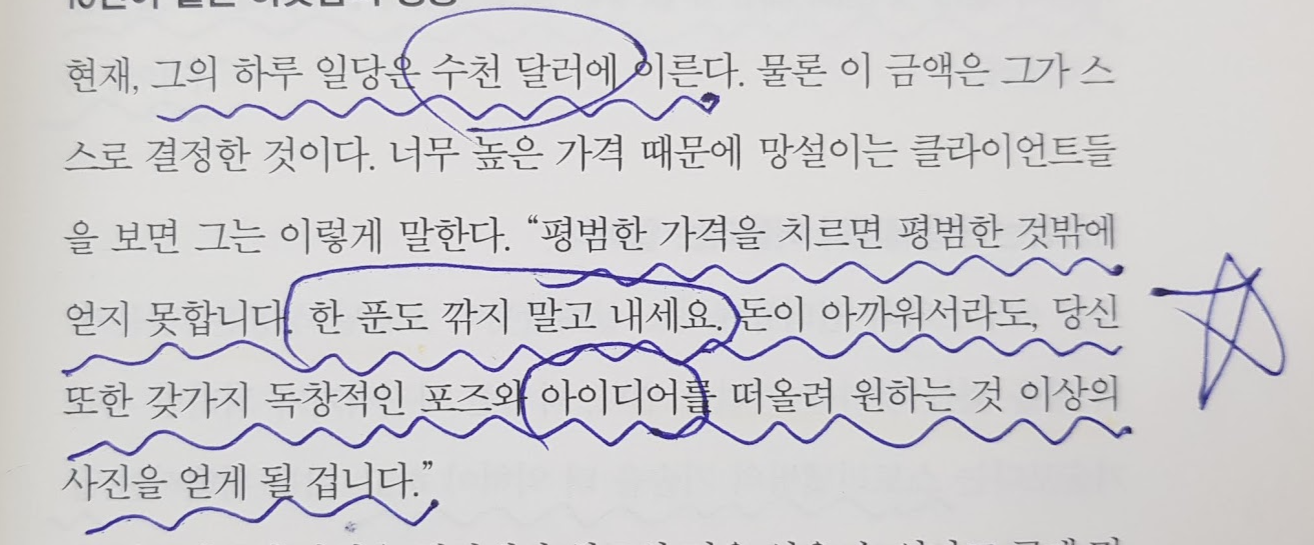 현재, 그의 하루 일당은 수천 달러에 이른다. 물론 이 금액은 그가 스
스로 결정한 것이다. 너무 높은 가격 때문에 망설이는 클라이언트들
을 보면 그는 이렇게 말한다. “평범한 가격을 치르면 평범한 것밖에
얻지 못합니다. 한 푼도 깎지 말고 내세요. 돈이 아까워서라도, 당신
또한 갖가지 독창적인 포즈와 아이디어를 떠올려 원하는 것 이상의
사진을 얻게 될 겁니다.”